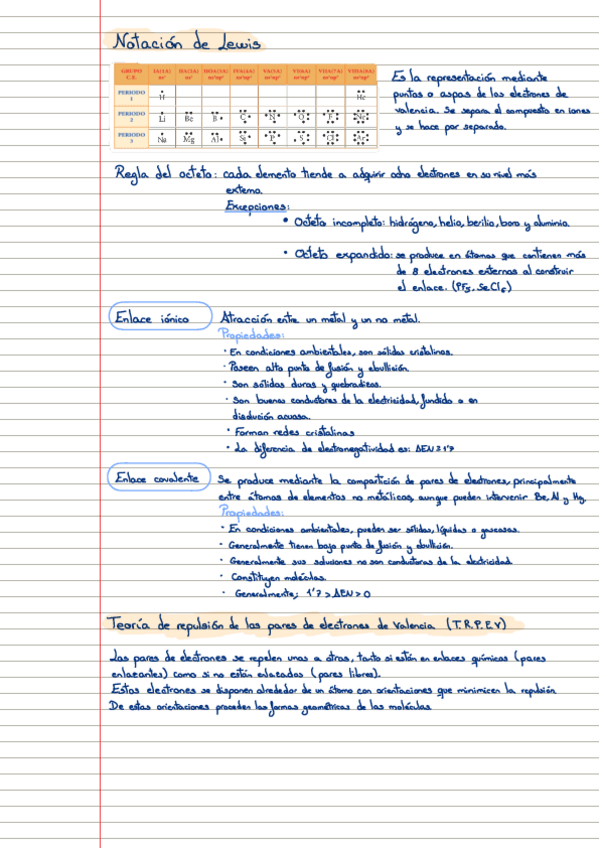 Notación de Lewis
GRUPO IA(1A) IIA(2A) IIIA(3A) IVA(4A) VA(5A) VIA(6A) VIIA(7A) VIIIA(8A)
C.E. ns¹ ns² ns²np¹ ns²np² ns²np³ ns²np⁴ ns²np⁵ ns²np⁶
PERIODO 1 H He
PERIODO 2 Li Be B C N O F Ne
PERIODO 3 Na Mg Al Si P S Cl Ar
Es la representación mediante
puntos o aspas de los electrones de
valencia. Se separa el compuesto en iones
y se hace por separado.
Regla del octeto: cada elemento tiende a adquirir ocho electrones en su nivel más
externo.
Excepciones:
• Octeto incompleto: hidrógeno, helio, berilio, boro y aluminio.
• Octeto expandido: se produce en átomos que contienen más
de 8 electrones externos al construir
el enlace. (PF₅, SeCl₆)
Enlace iónico Atracción entre un metal y un no metal.
Propiedades:
· En condiciones ambientales, son sólidos cristalinos.
· Poseen alto punto de fusión y ebullición.
· Son sólidos duros y quebradizos.
· Son buenos conductores de la electricidad, fundido o en
disolución acuosa.
· Forman redes cristalinas
· La diferencia de electronegatividad es: ΔEN≥1'7
Enlace covalente Se produce mediante la compartición de pares de electrones, principalmente
entre átomos de elementos no metálicos, aunque pueden intervenir Be, Al y Hg.
Propiedades:
· En condiciones ambientales, pueden ser sólidos, líquidos o gaseosos.
· Generalmente tienen bajo punto de fusión y ebullición.
· Generalmente sus soluciones no son conductoras de la electricidad
· Constituyen moléculas.
· Generalmente; 1'7 > ΔEN > 0
Teoría de repulsión de los pares de electrones de valencia (T.R.P.E.V)
Los pares de electrones se repelen unos a otros, tanto si están en enlaces químicos (pares
enlazantes) como si no están enlazados (pares libres).
Estos electrones se disponen alrededor de un átomo con orientaciones que minimicen la repulsión
De estas orientaciones proceden las formas geométricas de las moléculas